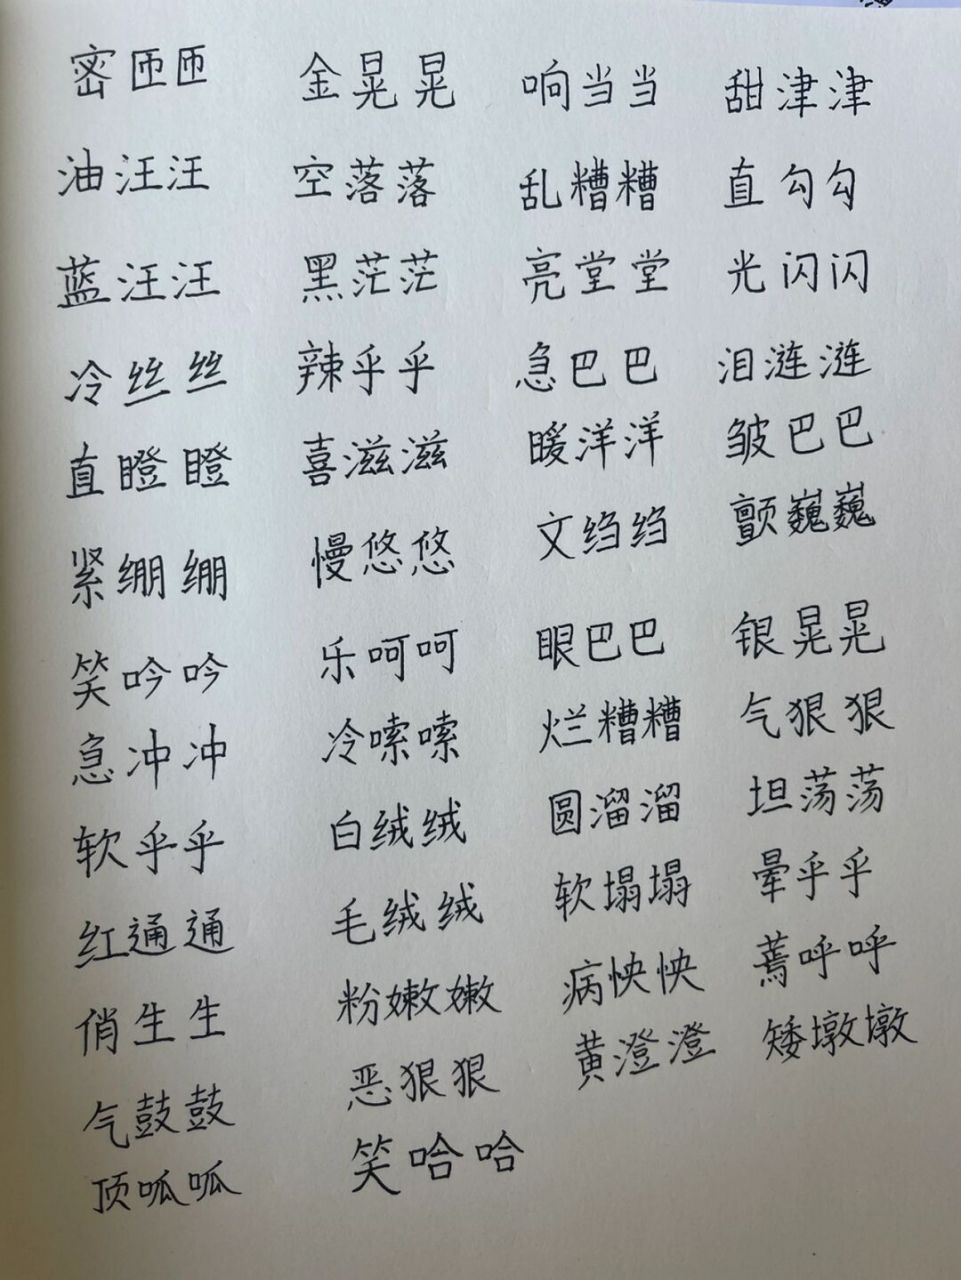 密匝匝 金晃晃 响当当 甜津津
油汪汪 空落落 乱糟糟 直勾勾
蓝汪汪 黑茫茫 亮堂堂 光闪闪
冷丝丝 辣乎乎 急巴巴 泪涟涟
直瞪瞪 喜滋滋 暖洋洋 皱巴巴
紧绷绷 慢悠悠 文绉绉 颤巍巍
笑吟吟 乐呵呵 眼巴巴 银晃晃
急冲冲 冷嗦嗦 烂糟糟 气狠狠
软乎乎 白绒绒 圆溜溜 坦荡荡
红通通 毛绒绒 软塌塌 晕乎乎
俏生生 粉嫩嫩 病怏怏 蔫呼呼
气鼓鼓 恶狠狠 黄澄澄 矮墩墩
顶呱呱 笑哈哈